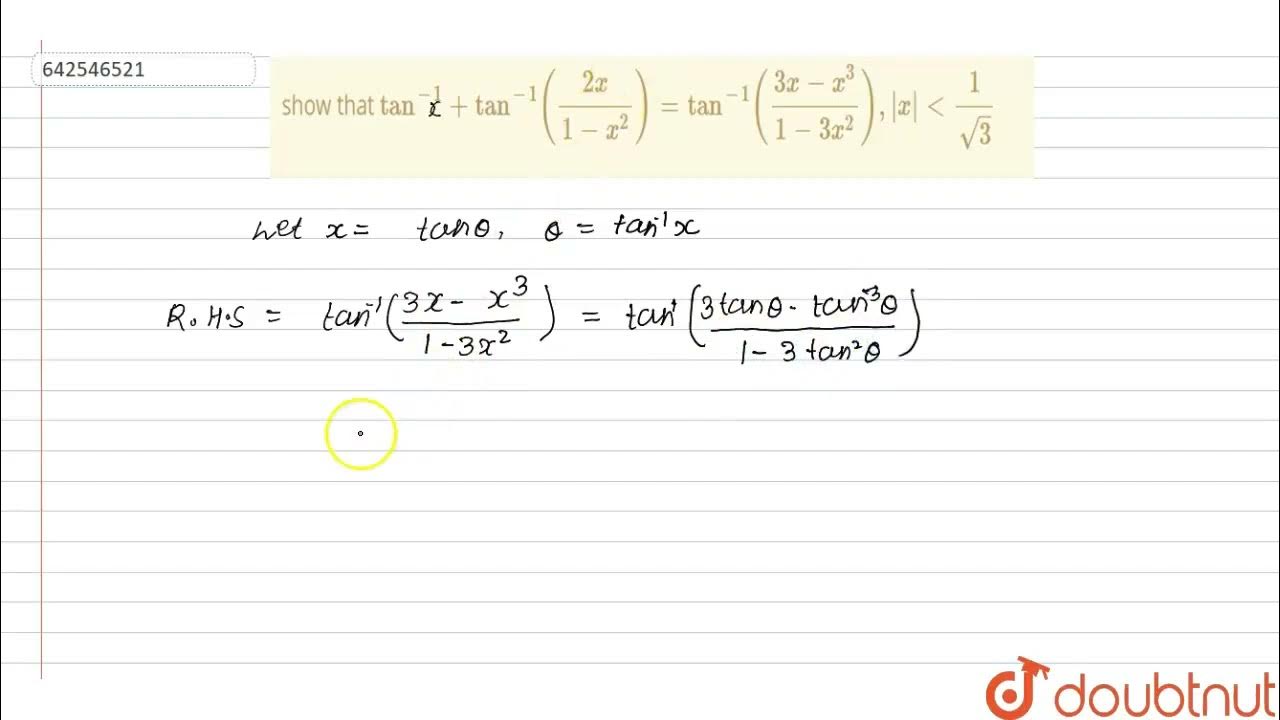 642546521
show that tan⁻¹x + tan⁻¹(2x / (1 − x²)) = tan⁻¹((3x − x³) / (1 − 3x²)), |x| < 1/√3
Let x = tanθ, θ = tan⁻¹x
R.H.S = tan⁻¹((3x − x³) / (1 − 3x²)) = tan⁻¹((3tanθ - tan³θ) / (1 − 3tan²θ))
doubtnut